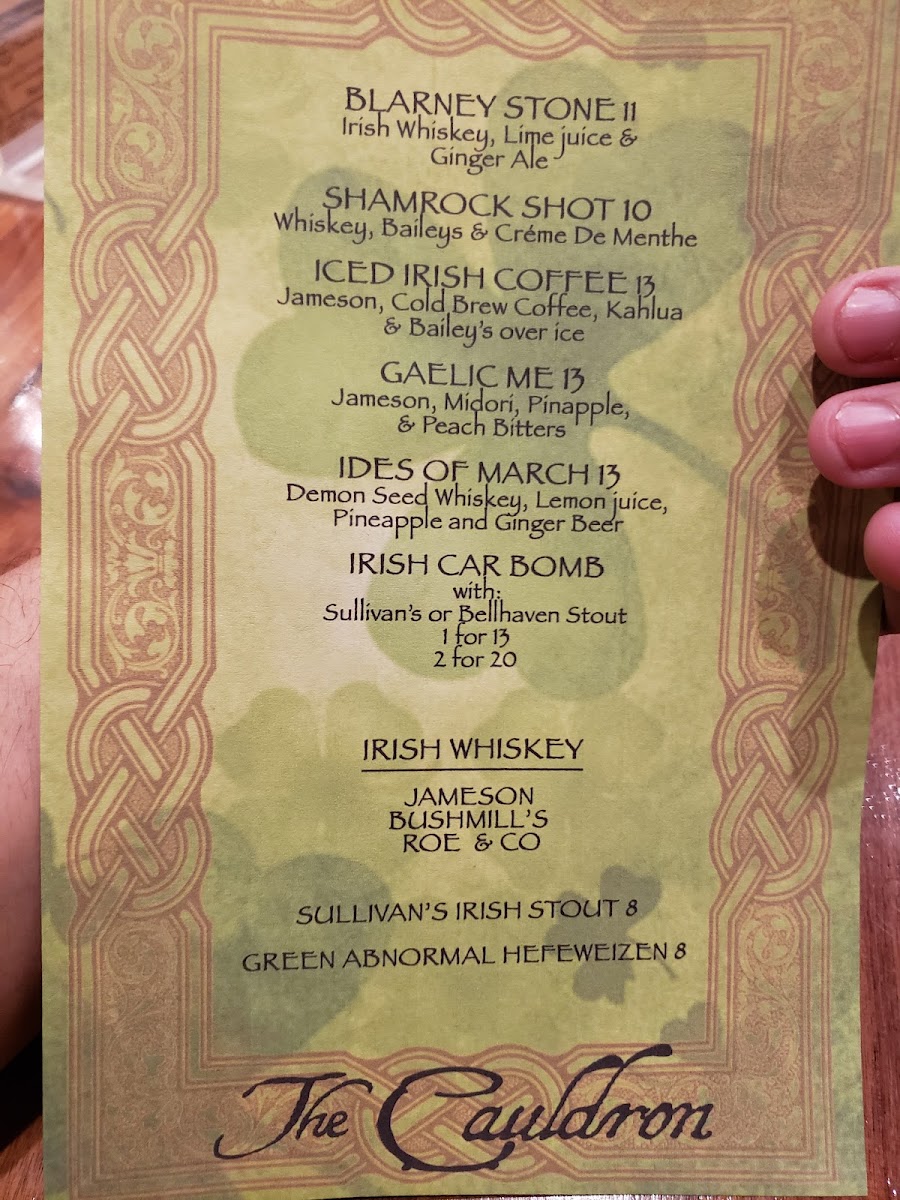 BLARNEY STONE 11
Irish Whiskey, Lime juice &
Ginger Ale
SHAMROCK SHOT 10
Whiskey, Baileys & Créme De Menthe
ICED IRISH COFFEE 13
Jameson, Cold Brew Coffee, Kahlua
& Bailey's over ice
GAELIC ME 13
Jameson, Midori, Pinapple,
& Peach Bitters
IDES OF MARCH 13
Demon Seed Whiskey, Lemon juice,
Pineapple and Ginger Beer
IRISH CAR BOMB
with:
Sullivan's or Bellhaven Stout
1 for 13
2 for 20
IRISH WHISKEY
JAMESON
BUSHMILL'S
ROE & CO
SULLIVAN'S IRISH STOUT 8
GREEN ABNORMAL HEFEWEIZEN 8
The Cauldron